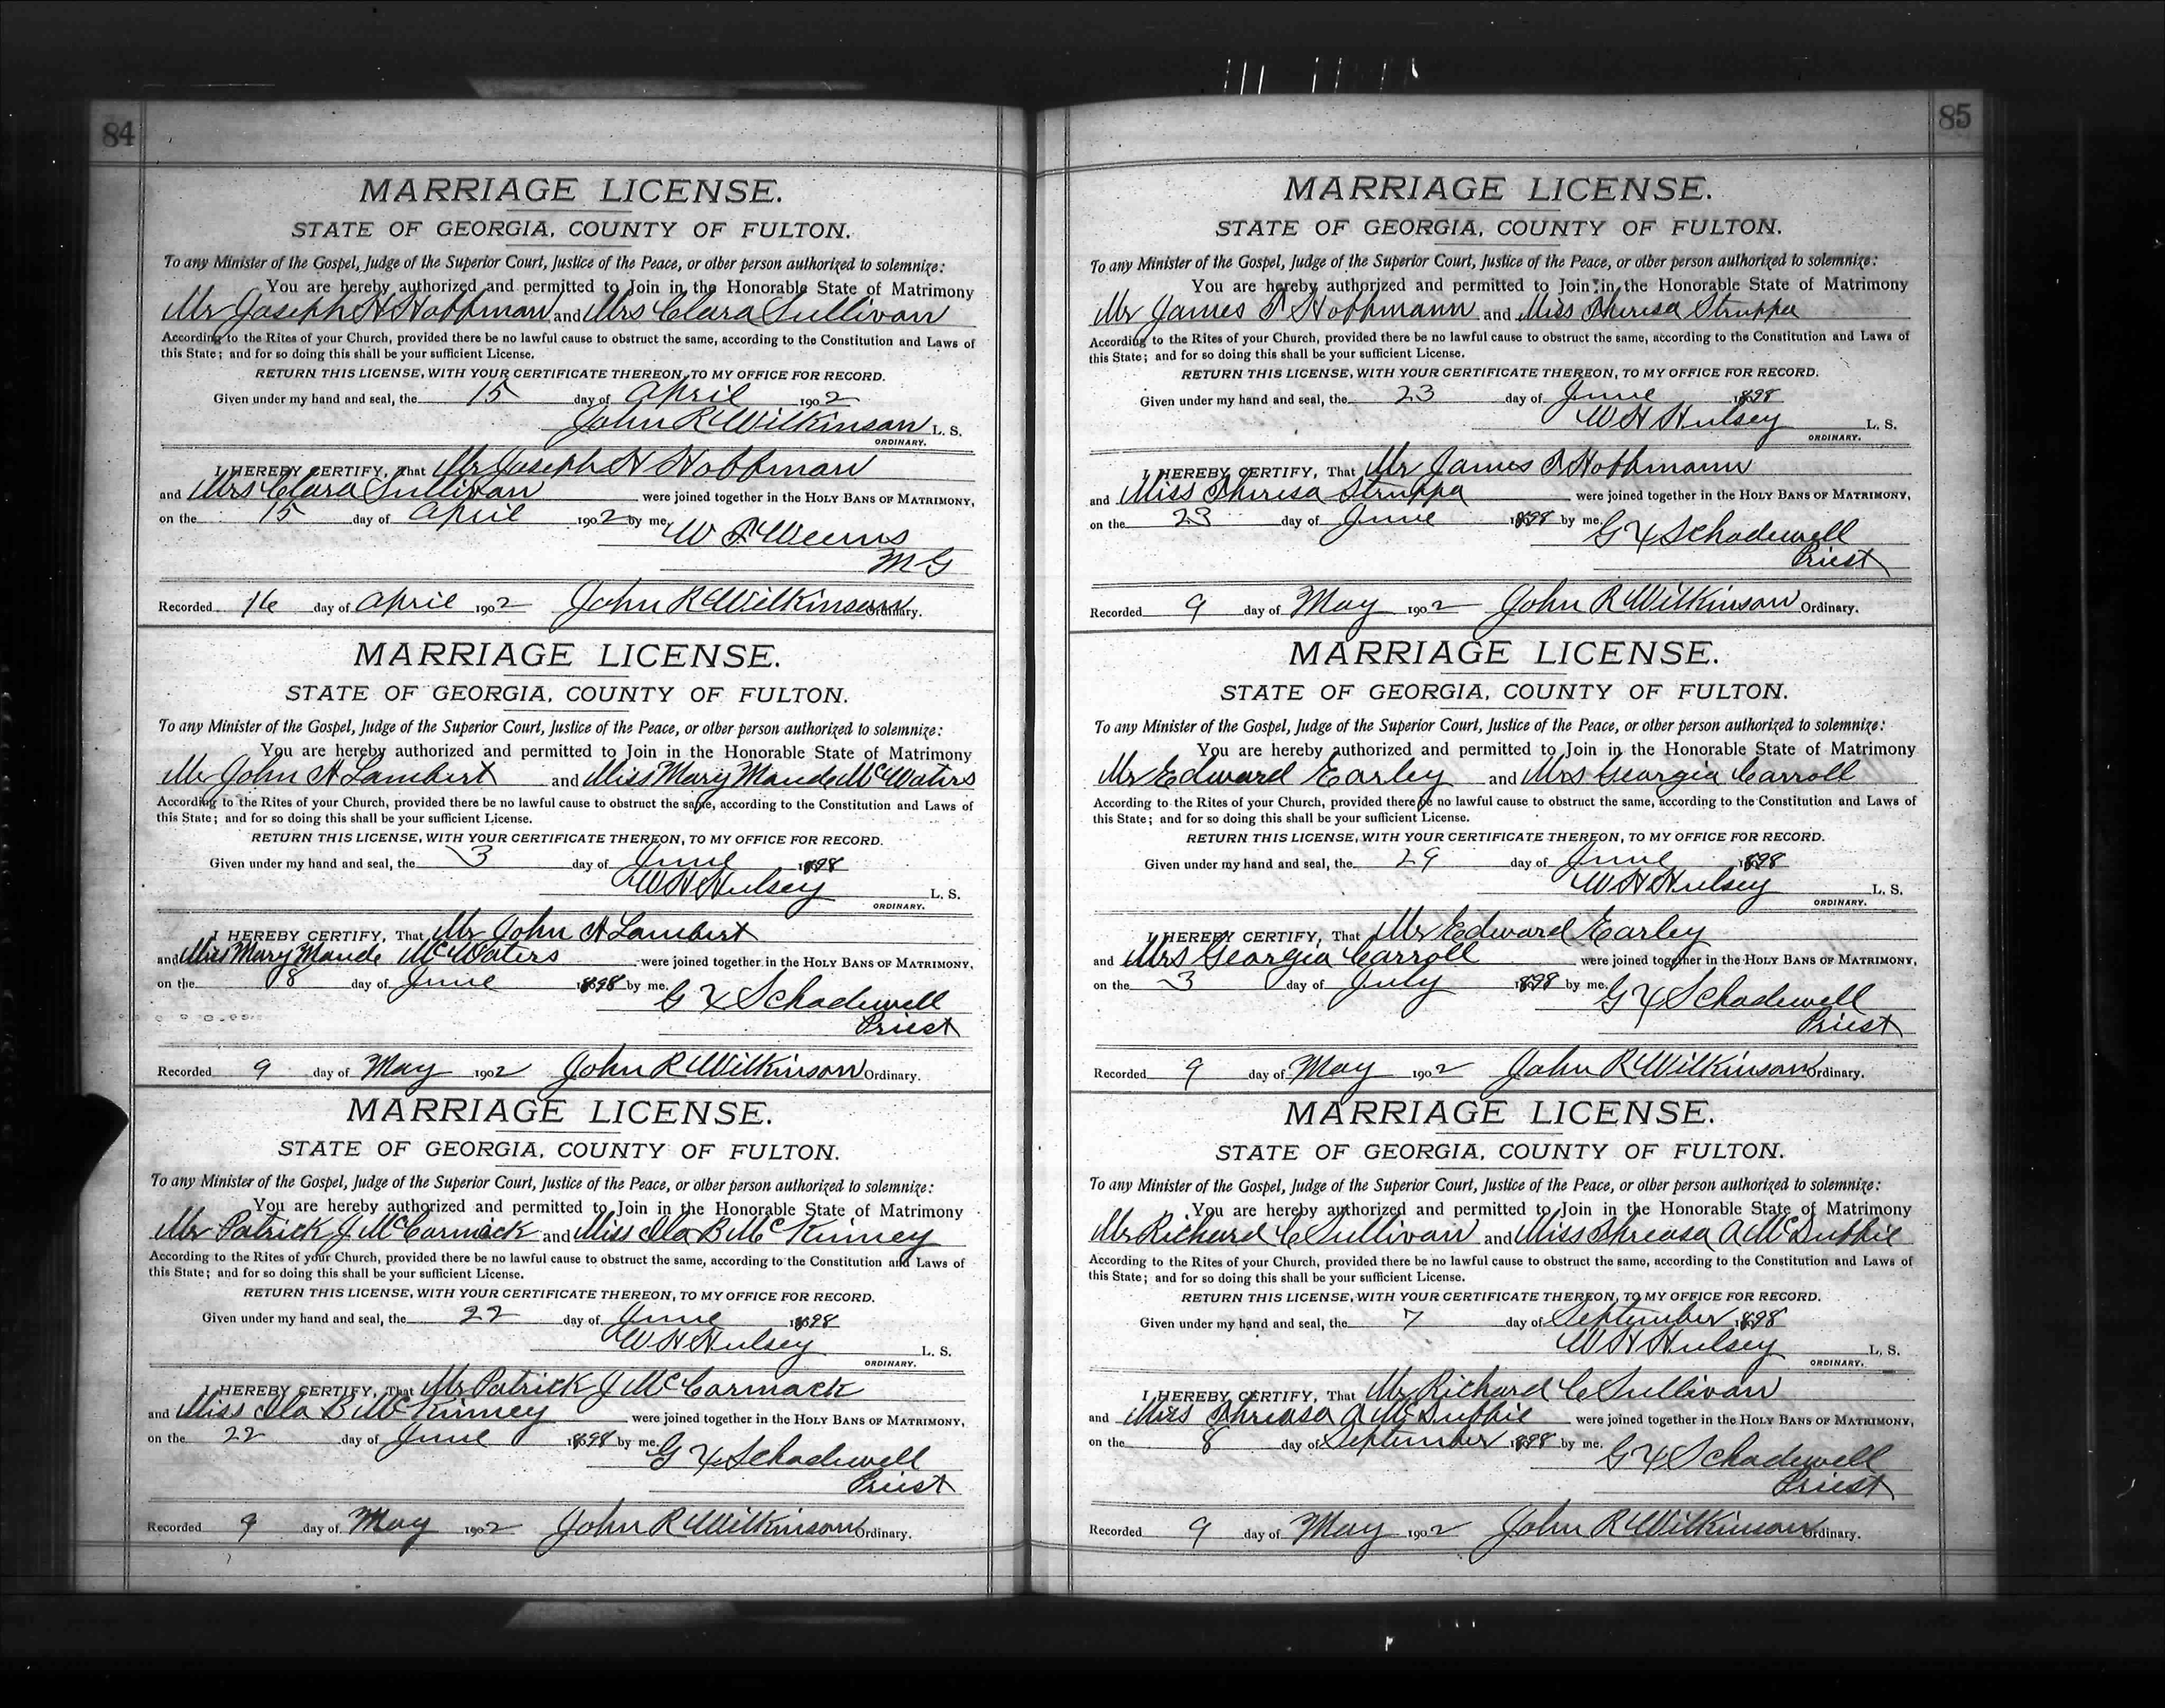 84
MARRIAGE LICENSE.
STATE OF GEORGIA, COUNTY OF FULTON.
To any Minister of the Gospel, Judge of the Superior Court, Justice of the Peace, or other person authorized to solemnize:
You are hereby authorized and permitted to Join in the Honorable State of Matrimony
Mr Joseph H Hoffman and Mrs Clara Sullivan
According to the Rites of your Church, provided there be no lawful cause to obstruct the same, according to the Constitution and Laws of
this State; and for so doing this shall be your sufficient License.
RETURN THIS LICENSE, WITH YOUR CERTIFICATE THEREON, TO MY OFFICE FOR RECORD.
Given under my hand and seal, the 15 day of April 1902
John R Wilkinson L. S.
ORDINARY.
I HEREBY CERTIFY, That Mr Joseph H Hoffman
and Mrs Clara Sullivan were joined together in the HOLY BANS OF MATRIMONY,
on the 15 day of April 1902 by me.
W P
M G
Recorded 16 day of April 1902 John R Wilkinson Ordinary.
MARRIAGE LICENSE.
STATE OF GEORGIA, COUNTY OF FULTON.
To any Minister of the Gospel, Judge of the Superior Court, Justice of the Peace, or other person authorized to solemnize:
You are hereby authorized and permitted to Join in the Honorable State of Matrimony
Mr John A Lambert and Miss Mary Maude McWaters
According to the Rites of your Church, provided there be no lawful cause to obstruct the same, according to the Constitution and Laws of
this State; and for so doing this shall be your sufficient License.
RETURN THIS LICENSE, WITH YOUR CERTIFICATE THEREON, TO MY OFFICE FOR RECORD.
Given under my hand and seal, the 3 day of June 1898
W H Hulsey L. S.
ORDINARY.
I HEREBY CERTIFY, That Mr John A Lambert
and Miss Mary Maude McWaters were joined together in the HOLY BANS OF MATRIMONY,
on the 8 day of June 1898 by me.
G X Schadewell
Priest
Recorded 9 day of May 1902 John R Wilkinson Ordinary.
MARRIAGE LICENSE.
STATE OF GEORGIA, COUNTY OF FULTON.
To any Minister of the Gospel, Judge of the Superior Court, Justice of the Peace, or other person authorized to solemnize:
You are hereby authorized and permitted to Join in the Honorable State of Matrimony
Mr Patrick J McCormack and Miss Ila B McKinney
According to the Rites of your Church, provided there be no lawful cause to obstruct the same, according to the Constitution and Laws of
this State; and for so doing this shall be your sufficient License.
RETURN THIS LICENSE, WITH YOUR CERTIFICATE THEREON, TO MY OFFICE FOR RECORD.
Given under my hand and seal, the 22 day of June 1898
W H Hulsey L. S.
ORDINARY.
I HEREBY CERTIFY, That Mr Patrick J McCarmack
and Miss Ila B McKinney were joined together in the HOLY BANS OF MATRIMONY,
on the 22 day of June 1898 by me.
G X Schadewell
Priest
Recorded 9 day of May 1902 John R Wilkinson Ordinary.
85
MARRIAGE LICENSE.
STATE OF GEORGIA, COUNTY OF FULTON.
To any Minister of the Gospel, Judge of the Superior Court, Justice of the Peace, or other person authorized to solemnize:
You are hereby authorized and permitted to Join in the Honorable State of Matrimony
Mr James P Hoffmann and Miss Theresa Struppa
According to the Rites of your Church, provided there be no lawful cause to obstruct the same, according to the Constitution and Laws of
this State; and for so doing this shall be your sufficient License.
RETURN THIS LICENSE, WITH YOUR CERTIFICATE THEREON, TO MY OFFICE FOR RECORD.
Given under my hand and seal, the 23 day of June 1898
W H Hulsey L. S.
ORDINARY.
I HEREBY CERTIFY, That Mr James P Hoffmann
and Miss Theresa Struppa were joined together in the HOLY BANS OF MATRIMONY,
on the 23 day of June 1898 by me.
G X Schadewell
Priest
Recorded 9 day of May 1902 John R Wilkinson Ordinary.
MARRIAGE LICENSE.
STATE OF GEORGIA, COUNTY OF FULTON.
To any Minister of the Gospel, Judge of the Superior Court, Justice of the Peace, or other person authorized to solemnize:
You are hereby authorized and permitted to Join in the Honorable State of Matrimony
Mr Edward Earley and Mrs Georgia Carroll
According to the Rites of your Church, provided there be no lawful cause to obstruct the same, according to the Constitution and Laws of
this State; and for so doing this shall be your sufficient License.
RETURN THIS LICENSE, WITH YOUR CERTIFICATE THEREON, TO MY OFFICE FOR RECORD.
Given under my hand and seal, the 29 day of June 1898
W H Hulsey L. S.
ORDINARY.
I HEREBY CERTIFY, That Mr Edward Earley
and Mrs Georgia Carroll were joined together in the HOLY BANS OF MATRIMONY,
on the 3 day of July 1898 by me.
G X Schadewell
Priest
Recorded 9 day of May 1902 John R Wilkinson Ordinary.
MARRIAGE LICENSE.
STATE OF GEORGIA, COUNTY OF FULTON.
To any Minister of the Gospel, Judge of the Superior Court, Justice of the Peace, or other person authorized to solemnize:
You are hereby authorized and permitted to Join in the Honorable State of Matrimony
Mr Richard C Sullivan and Miss Threasa A McDuffie
According to the Rites of your Church, provided there be no lawful cause to obstruct the same, according to the Constitution and Laws of
this State; and for so doing this shall be your sufficient License.
RETURN THIS LICENSE, WITH YOUR CERTIFICATE THEREON, TO MY OFFICE FOR RECORD.
Given under my hand and seal, the 7 day of September 1898
W H Hulsey L. S.
ORDINARY.
I HEREBY CERTIFY, That Mr Richard C Sullivan
and Miss Threasa A McDuffie were joined together in the HOLY BANS OF MATRIMONY,
on the 8 day of September 1898 by me.
G X Schadewell
Priest
Recorded 9 day of May 1902 John R Wilkinson Ordinary.